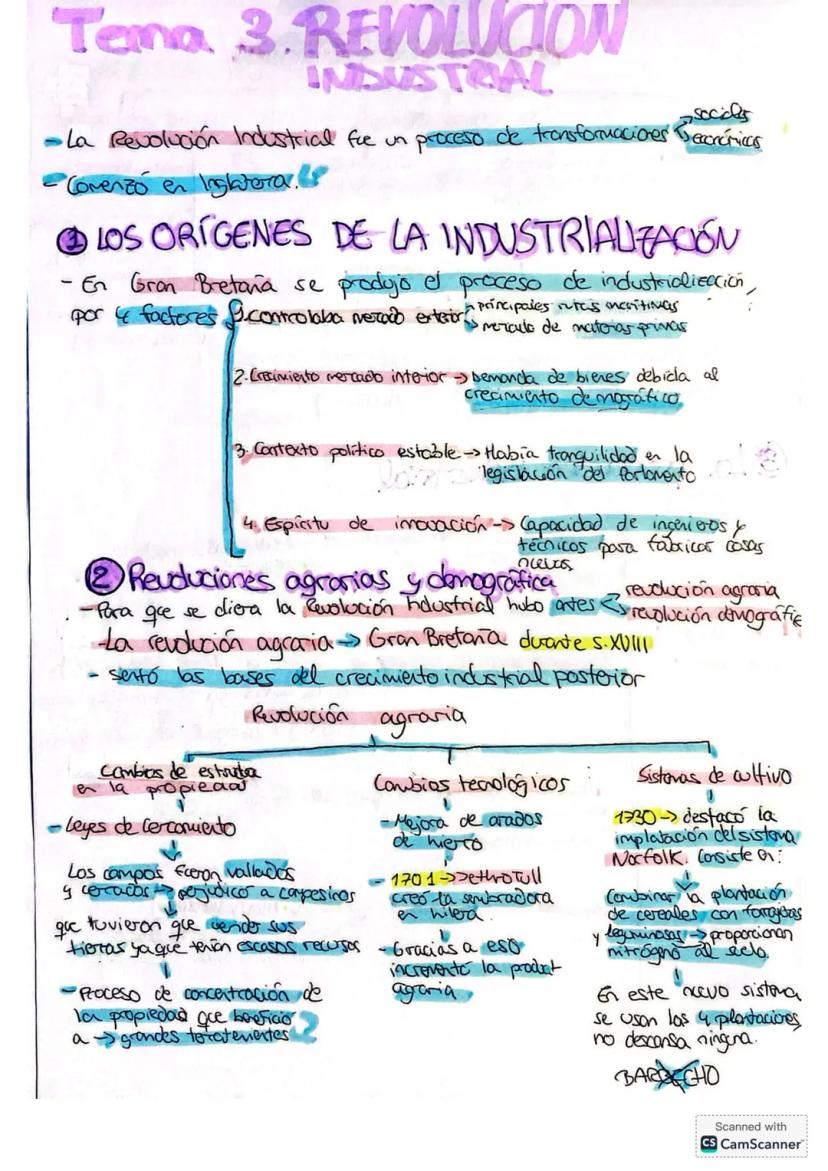 Tema 3. REVOLUCION
INDUSTRIAL
- La Revolución Industrial fue un proceso de transformaciones sociales
económicas
- Comenzó en Inglaterra.
1 LOS ORÍGENES DE LA INDUSTRIALIZACIÓN
- En Gran Bretaña se produjo el proceso de industrialización,
por 4 factores
1. controlaba mercado exterior
principales rutas marítimas
mercado de materias primas
2. Crecimiento mercado interior → Demanda de bienes debida al
crecimiento demográfico
3. Contexto político estable → Había tranquilidad en la
legislación del Parlamento
4. Espíritu de innovación → Capacidad de ingenieros y
técnicos para fabricar cosas
nuevas
2 Revoluciones agrarias y demográfica
- Para que se diera la Revolución Industrial hubo antes
revolución agraria
revolución demográfic
- La revolución agraria → Gran Bretaña durante s.XVIII
- sentó las bases del crecimiento industrial posterior
Revolución agraria
Cambios de estruta
en la propiedad
- Leyes de Cercamiento
Los campos fueron vallados
y cercados → perjudicó a campesinos
que tuvieron que vender sus
tierras ya que tenían escasos recursos
- Proceso de concentración de
la propiedad que benefició
a → grandes terratenientes
Cambios tecnológicos
- Mejora de arados
de hierro
- 1701 → Jethro Tull
creó la sembradora
en hilera
- Gracias a eso
incrementó la product
agraria
Sistemas de cultivo
1730 → destacó la
implatación del sistema
Norfolk. Consiste en:
Combinar la plantación
de cereales con forrajeras
y leguminosas → proporcionan
nitrógeno al suelo.
En este nuevo sistema
se usan las 4 plantaciones,
no descansa ninguna.
BARBECHO
Scanned with
CS CamScanner